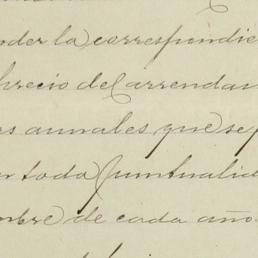 der la correspondie
precio del arrendam
os anuales que se p
toda puntualid
mbre de cada año